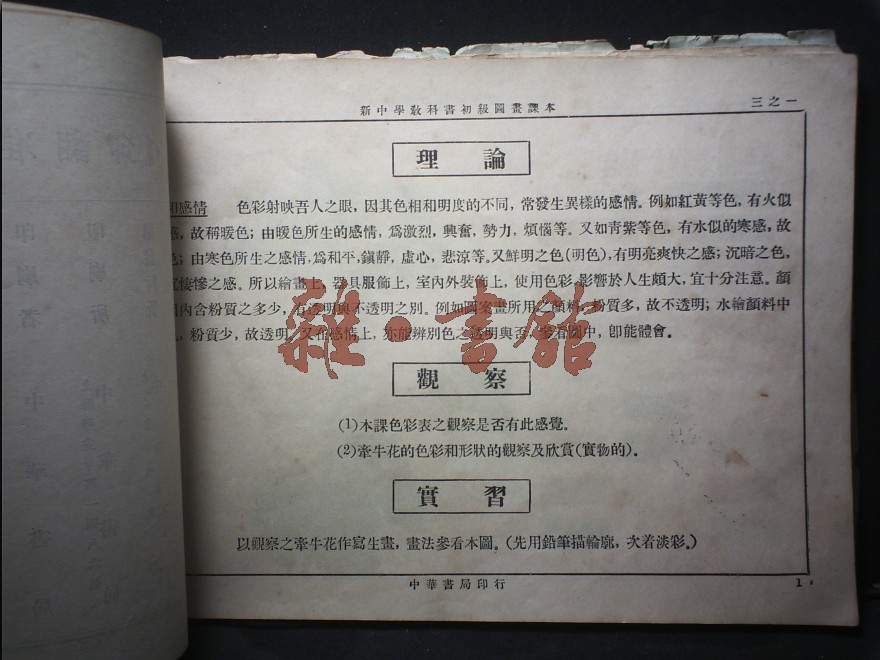 新中學教科書初級圖畫課本
三之一
理論
和感情 色彩射映吾人之眼，因其色相和明度的不同，常發生異樣的感情。例如紅黃等色，有火似
感，故稱暖色；由暖色所生的感情，爲激烈，興奮，勢力，煩惱等。又如青紫等色，有水似的寒感，故
色；由寒色所生之感情，爲和平，鎭靜，虛心，悲涼等。又鮮明之色（明色），有明亮爽快之感；沉暗之色，
悽慘之感。所以繪畫上，器具服飾上，室內外裝飾上，使用色彩，影響於人生頗大，宜十分注意。顏
內含粉質之多少，有透明與不透明之別。例如圖案畫所用之顏料，粉質多，故不透明；水繪顏料中
，粉質少，故透明。又在感情上，亦能辨別色之透明與否，參看圖中，卽能體會。
雜·書館
觀察
(1)本課色彩表之觀察是否有此感覺。
(2)牽牛花的色彩和形狀的觀察及欣賞（實物的）。
實習
以觀察之牽牛花作寫生畫，畫法參看本圖。（先用鉛筆描輪廓，次着淡彩。）
中華書局印行
1
印刷者 中華書局
印刷所